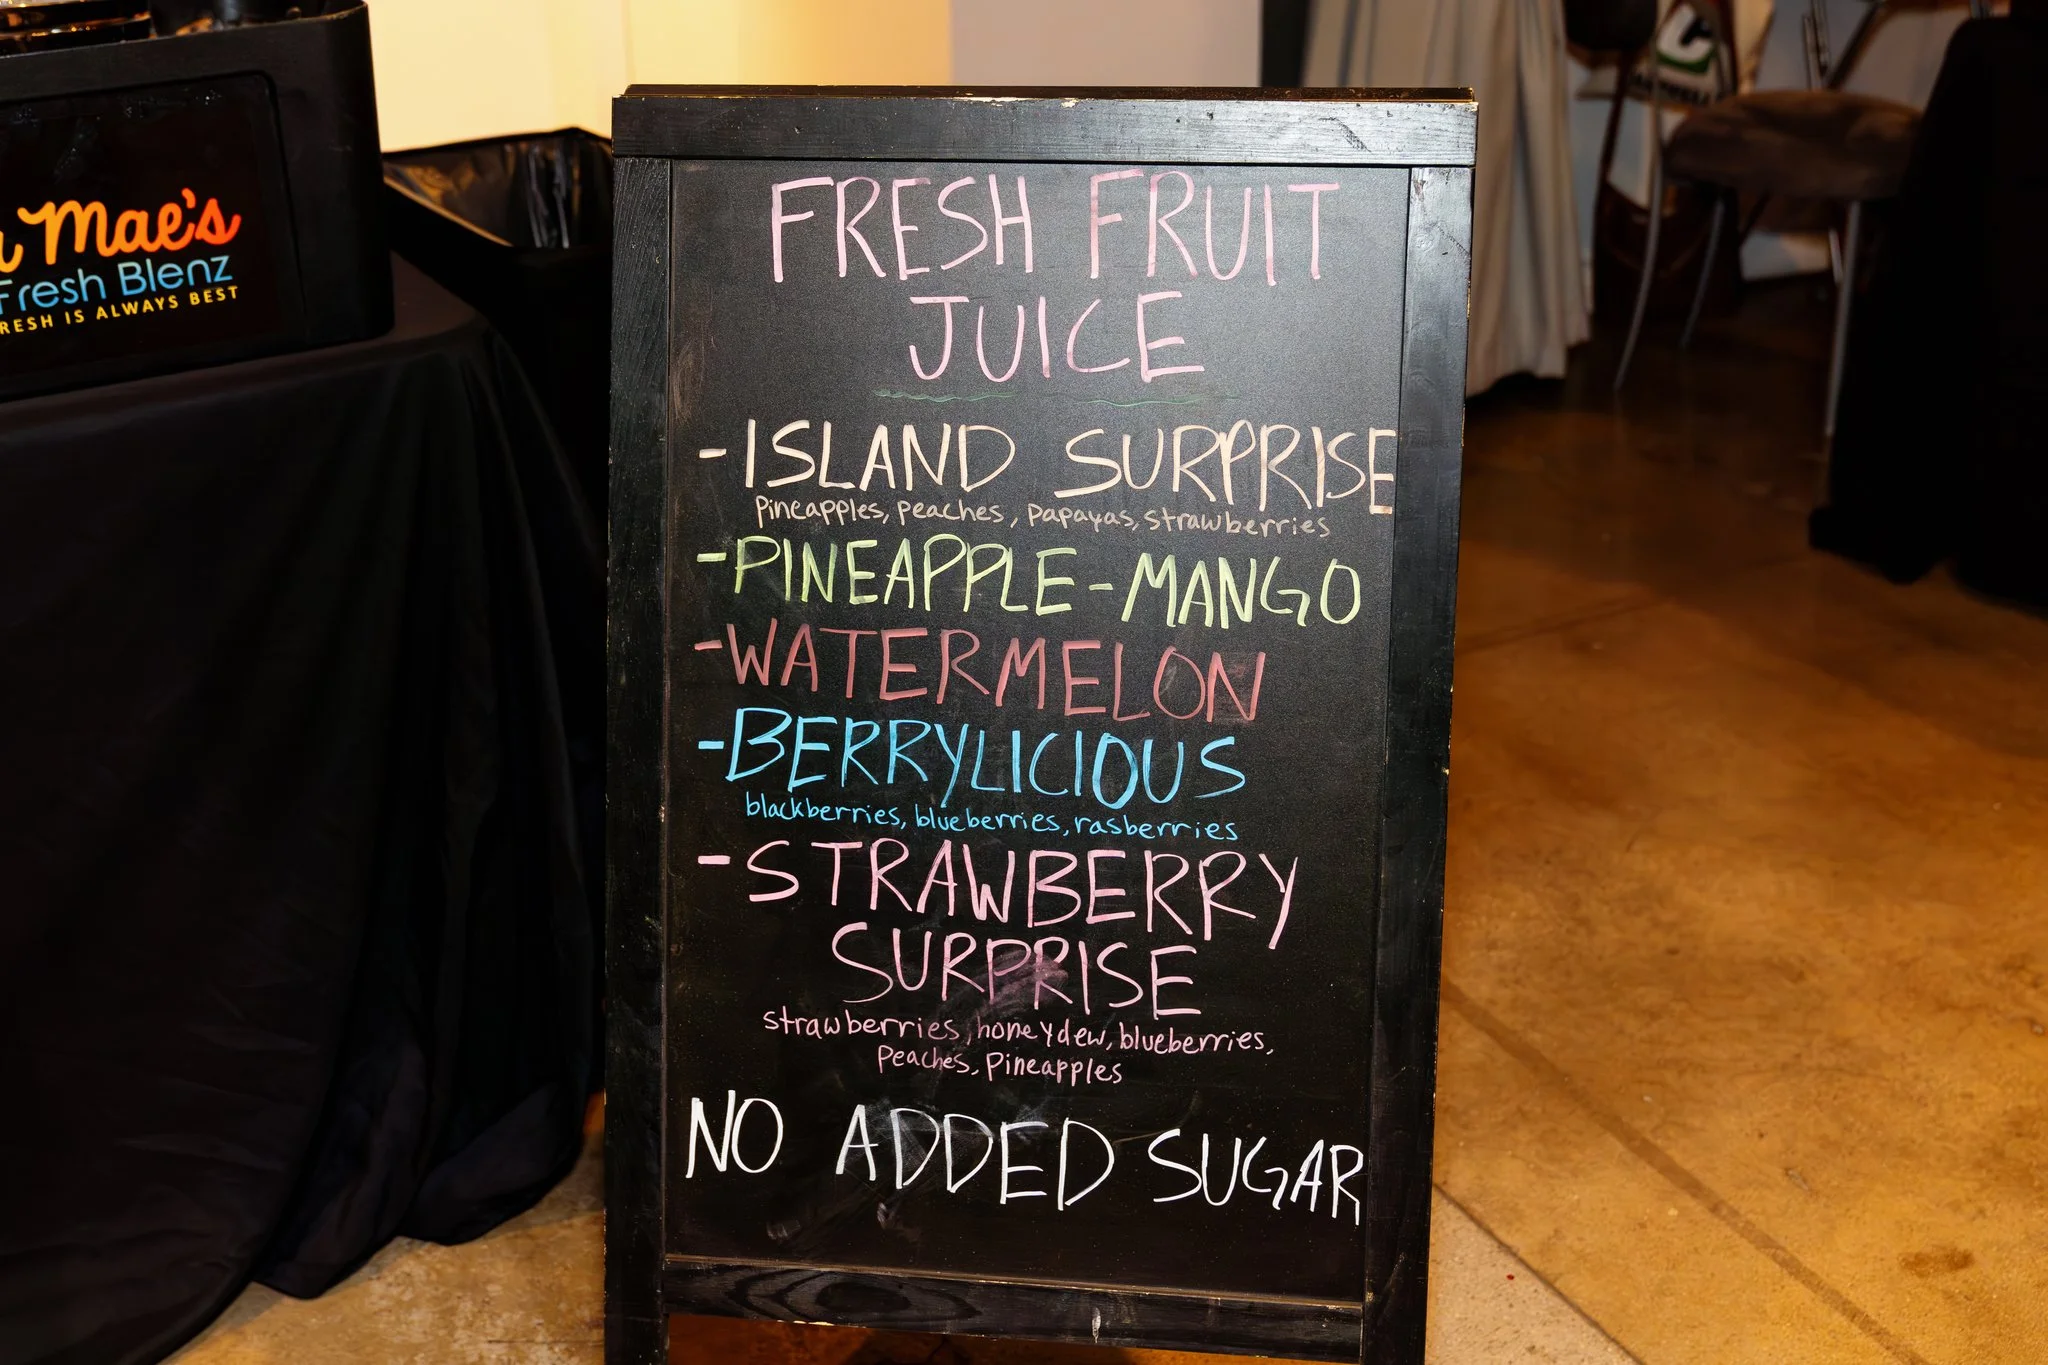 Mae's
Fresh Blenz
RESH IS ALWAYS BEST
FRESH FRUIT
JUICE
-ISLAND SURPRISE
Pineapples, peaches, papayas, strawberries
-PINEAPPLE-MANGO
-WATERMELON
-BERRYLICIOUS
blackberries, blueberries, rasberries
-STRAWBERRY
SURPRISE
strawberries, honeydew, blueberries,
Peaches, Pineapples
NO ADDED SUGAR